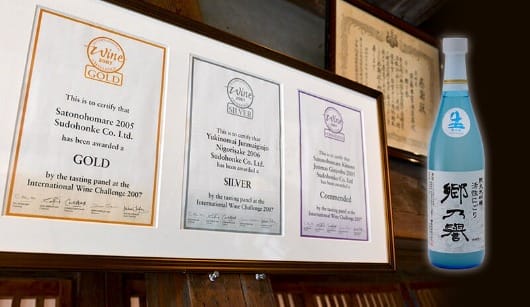 Wine
2007
GOLD
This is to certify that
Satonohomare 2005
Sudohonke Co. Ltd.
has been awarded a
GOLD
by the tasting panel at the
International Wine Challenge 2007
Wine
2007
SILVER
This is to certify that
Yukinomai Junmaiginjo
Nigorisake 2006
Sudohonke Co. Ltd.
has been awarded a
SILVER
by the tasting panel at the
International Wine Challenge 2007
This is to certify that
Satonohomare Kimoto
Junmai Ginjoshu 2005
Sudohonke Co. Ltd.
has been awarded a
Commended
by the tasting panel at the
International Wine Challenge 2007
生
活性にごり
郷乃譽